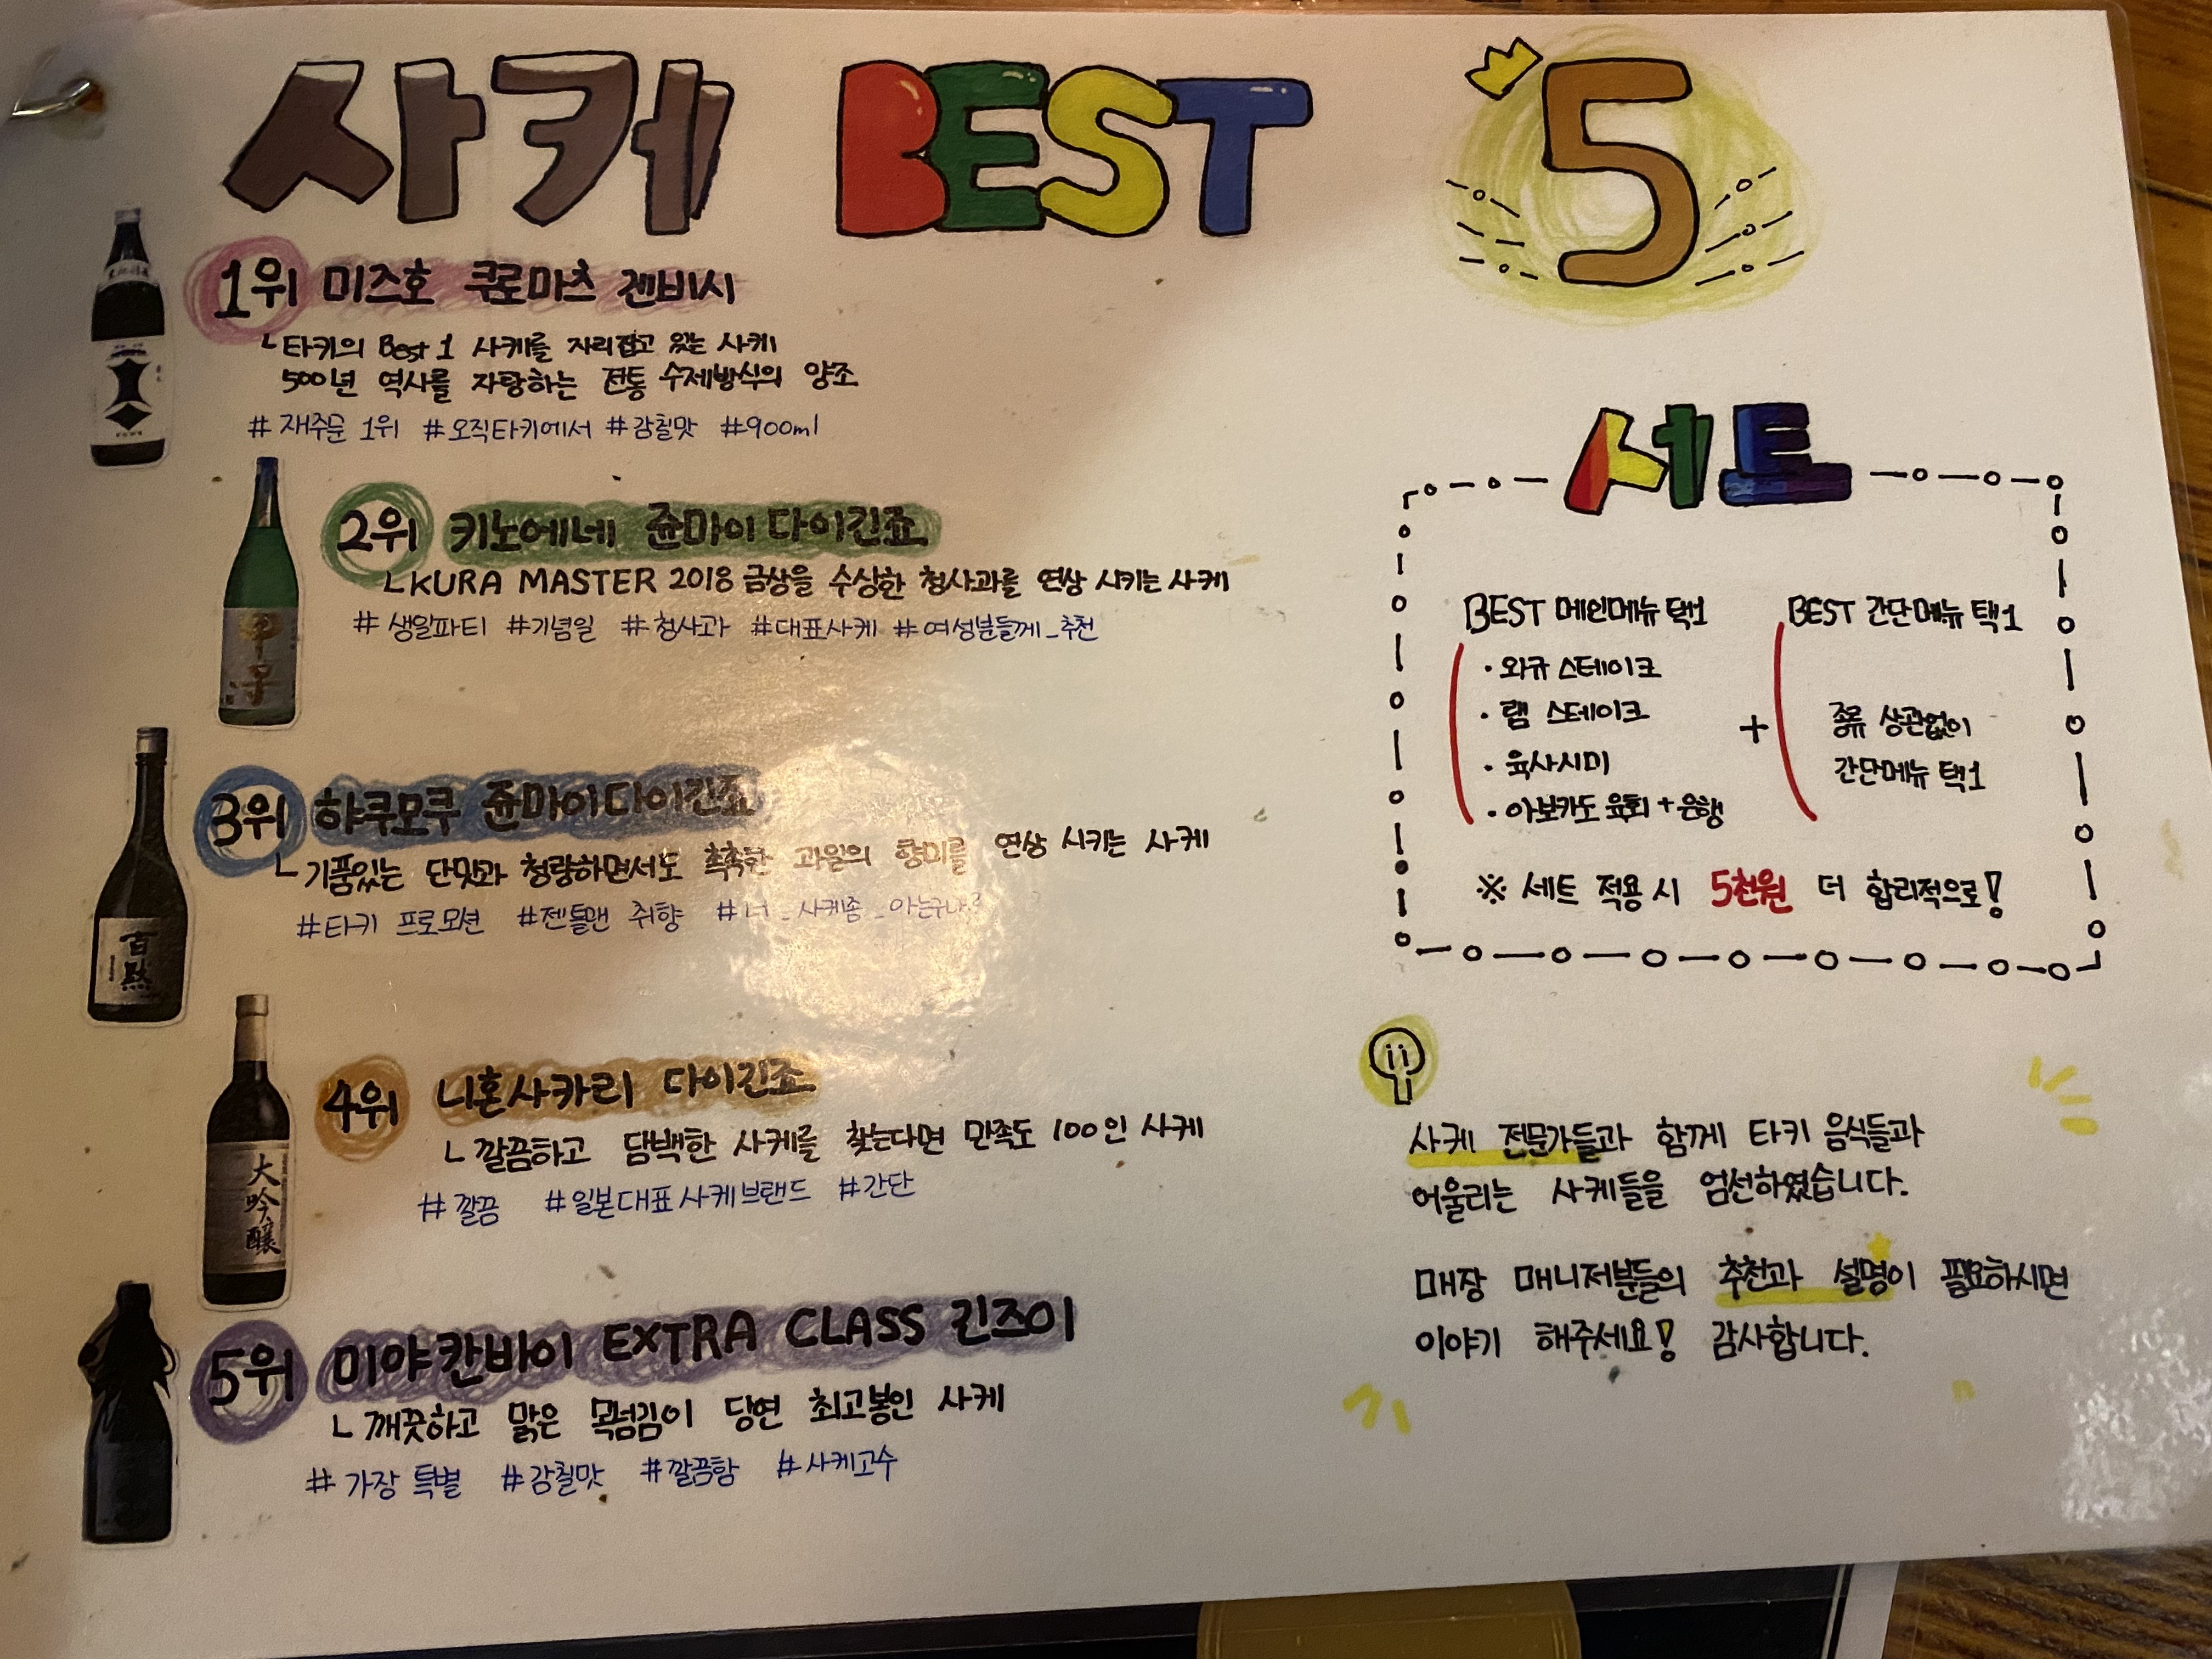 사케 BEST 5
1위 미즈호 쿠로마츠 겐비시
ㄴ타키의 Best 1 사케를 자리잡고 있는 사케
500년 역사를 자랑하는 전통 수제방식의 양조
# 재주문 1위 #오직타키에서 #감칠맛 #900ml
2위 키노에네 쥰마이다이긴죠
ㄴKURA MASTER 2018 금상을 수상한 청사과를 연상 시키는 사케
# 생일파티 #기념일 #청사과 #대표사케 #여성분들께_추천
甲子
3위 햐쿠모쿠 쥰마이다이긴죠
ㄴ기품있는 단맛과 청량하면서도 촉촉한 과일의 향미를 연상 시키는 사케
#타키 프로모션 #젠틀맨 취향 #너_사케좀_아는구나?
百黙
4위 니혼사카리 다이긴죠
ㄴ깔끔하고 담백한 사케를 찾는다면 만족도 100인 사케
#깔끔 #일본대표사케브랜드 #간단
大吟醸
5위 미야칸바이 EXTRA CLASS 긴즈이
ㄴ깨끗하고 맑은 목넘김이 당연 최고봉인 사케
# 가장 특별 #감칠맛 #깔끔함 #사케고수
세트
BEST 메인메뉴 택1
· 와규 스테이크
· 램 스테이크
· 육사시미
· 아보카도 육회 + 은행
+
BEST 간단메뉴 택1
종류 상관없이
간단메뉴 택1
※ 세트 적용 시 5천원 더 합리적으로!
사케 전문가들과 함께 타키 음식들과
어울리는 사케들을 엄선하였습니다.
매장 매니저분들의 추천과 설명이 필요하시면
이야기 해주세요! 감사합니다.